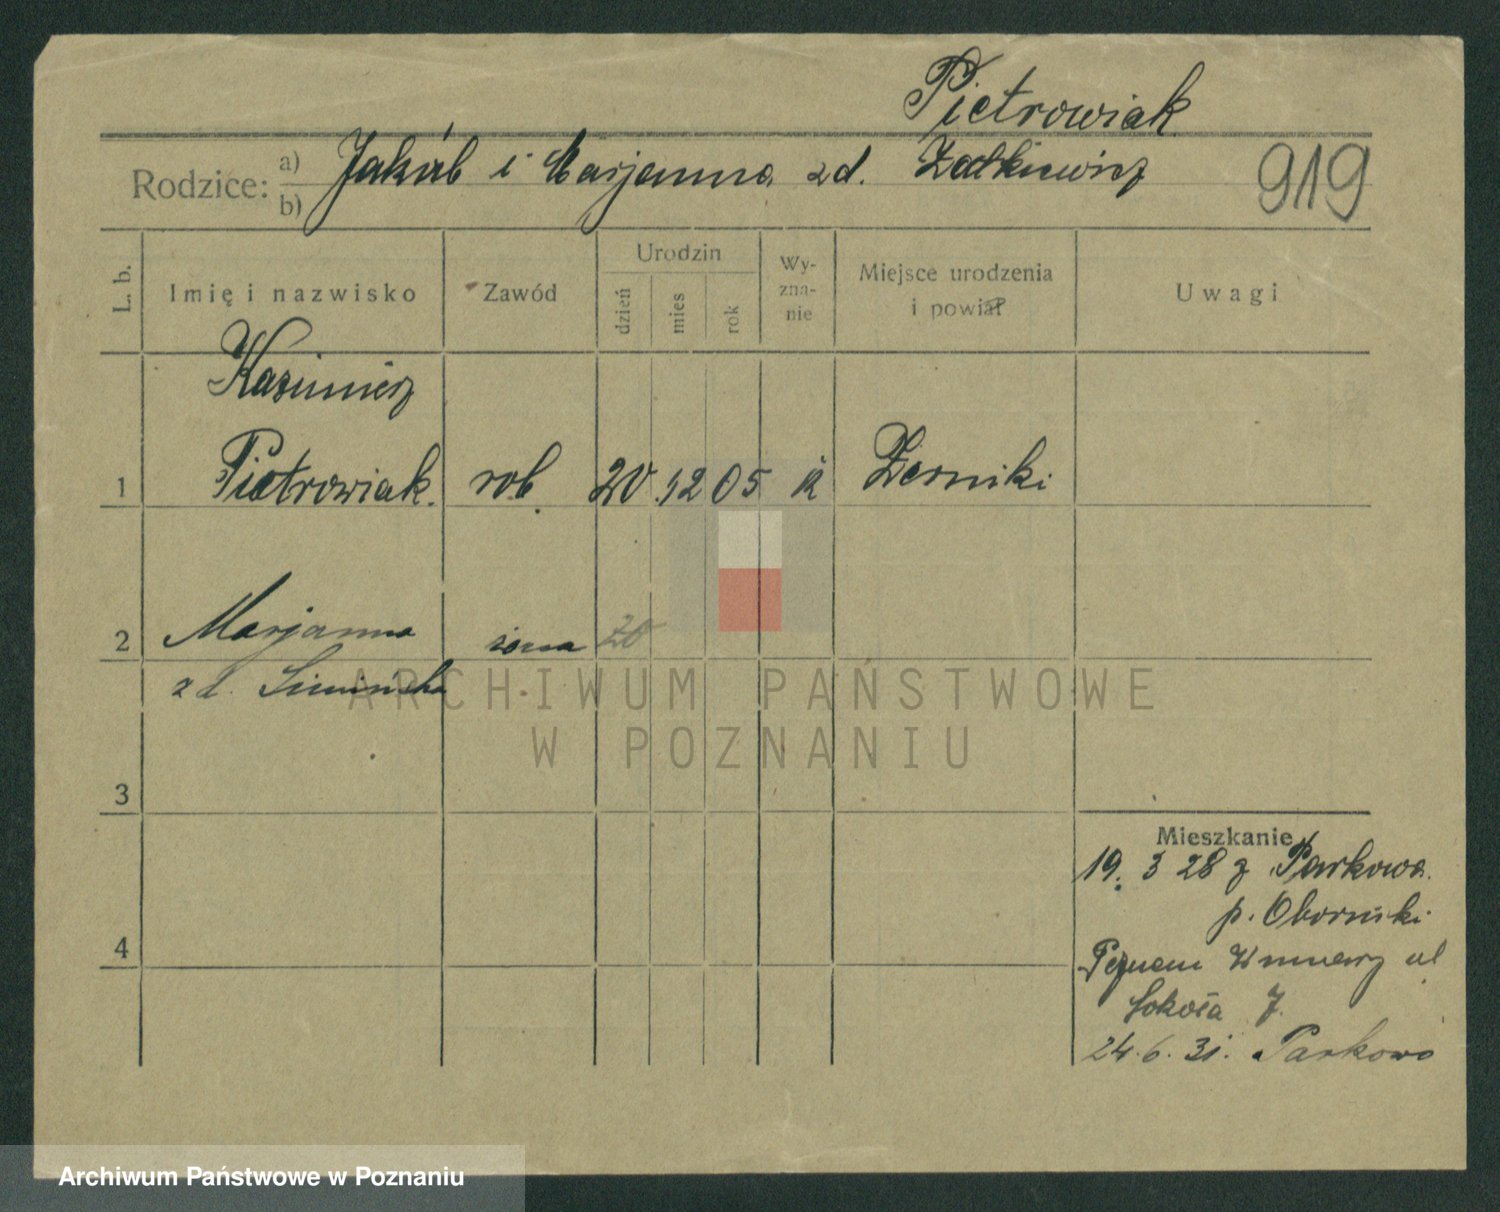 Pietrowiak
Rodzice: a) b) Jakób i Marjanna zd. Żółkiewicz 919
L. b. Imię i nazwisko Zawód Urodzin dzień mies rok Wy-zna-nie Miejsce urodzenia i powiat Uwagi
Kazimierz
1 Pietrowiak. rob. 20 12 05 k Żerniki
2 Marjanna żona 20
zd. Simińska
ARCHIWUM PAŃSTWOWE
W POZNANIU
3
Mieszkanie
19. 3 28 z Parkowa.
p. Obornicki
4
Poznań ul
Sokoła 7.
24. 6. 31. Parkowo
Archiwum Państwowe w Poznaniu